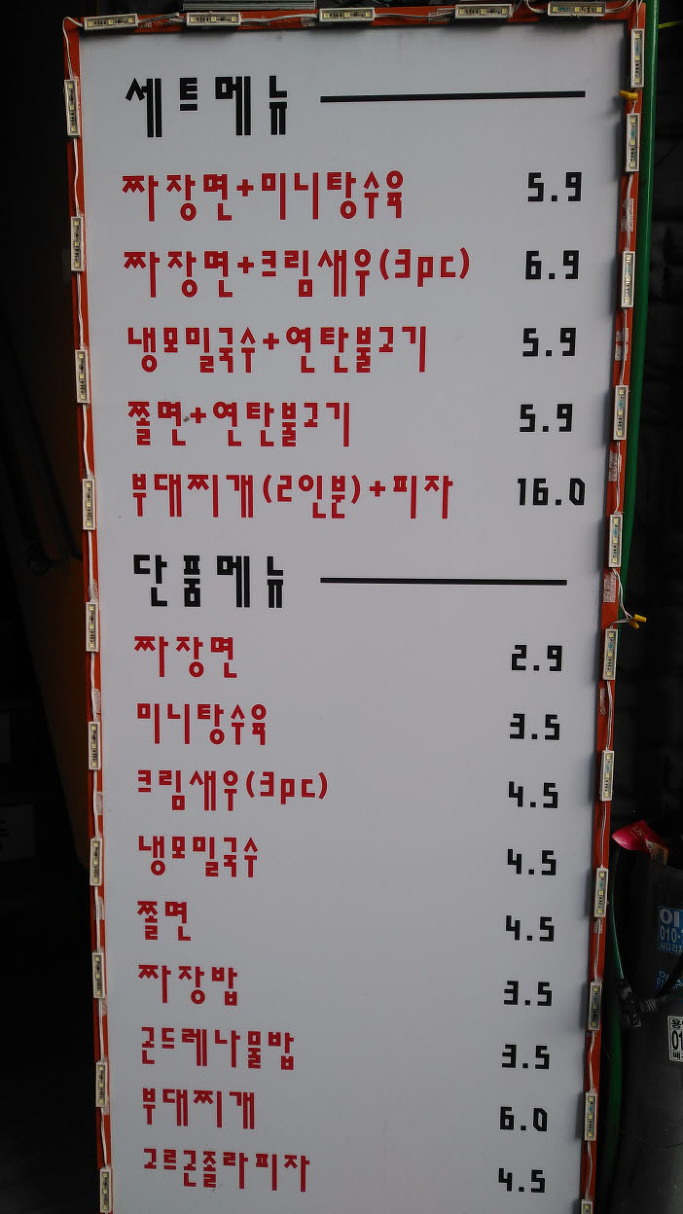 세트메뉴
짜장면+미니탕수육 5.9
짜장면+크림새우(3pc) 6.9
냉모밀국수+연탄불고기 5.9
쫄면+연탄불고기 5.9
부대찌개(2인분)+피자 16.0
단품메뉴
짜장면 2.9
미니탕수육 3.5
크림새우(3pc) 4.5
냉모밀국수 4.5
쫄면 4.5
짜장밥 3.5
곤드레나물밥 3.5
부대찌개 6.0
고르곤졸라피자 4.5